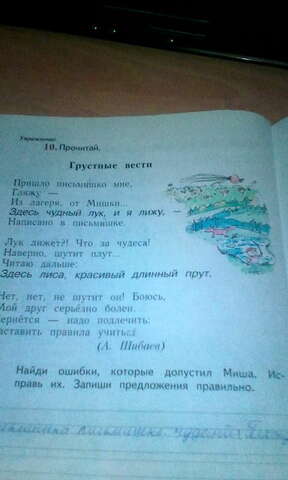 Упражнение
10. Прочитай.
Грустные вести
Пришло письмишко мне,
Гляжу —
Из лагеря, от Мишки...
Здесь чудный лук, и я лижу, —
Написано в письмишке.
Лук лижет?! Что за чудеса!
Наверно, шутит плут...
Читаю дальше:
Здесь лиса, красивый длинный прут.
Нет, нет, не шутит он! Боюсь,
Мой друг серьёзно болен.
ернётся — надо подлечить:
аставить правила учить!
(А. Шибаев)
Найди ошибки, которые допустил Миша. Ис-
правь их. Запиши предложения правильно.
письмишке чудесный